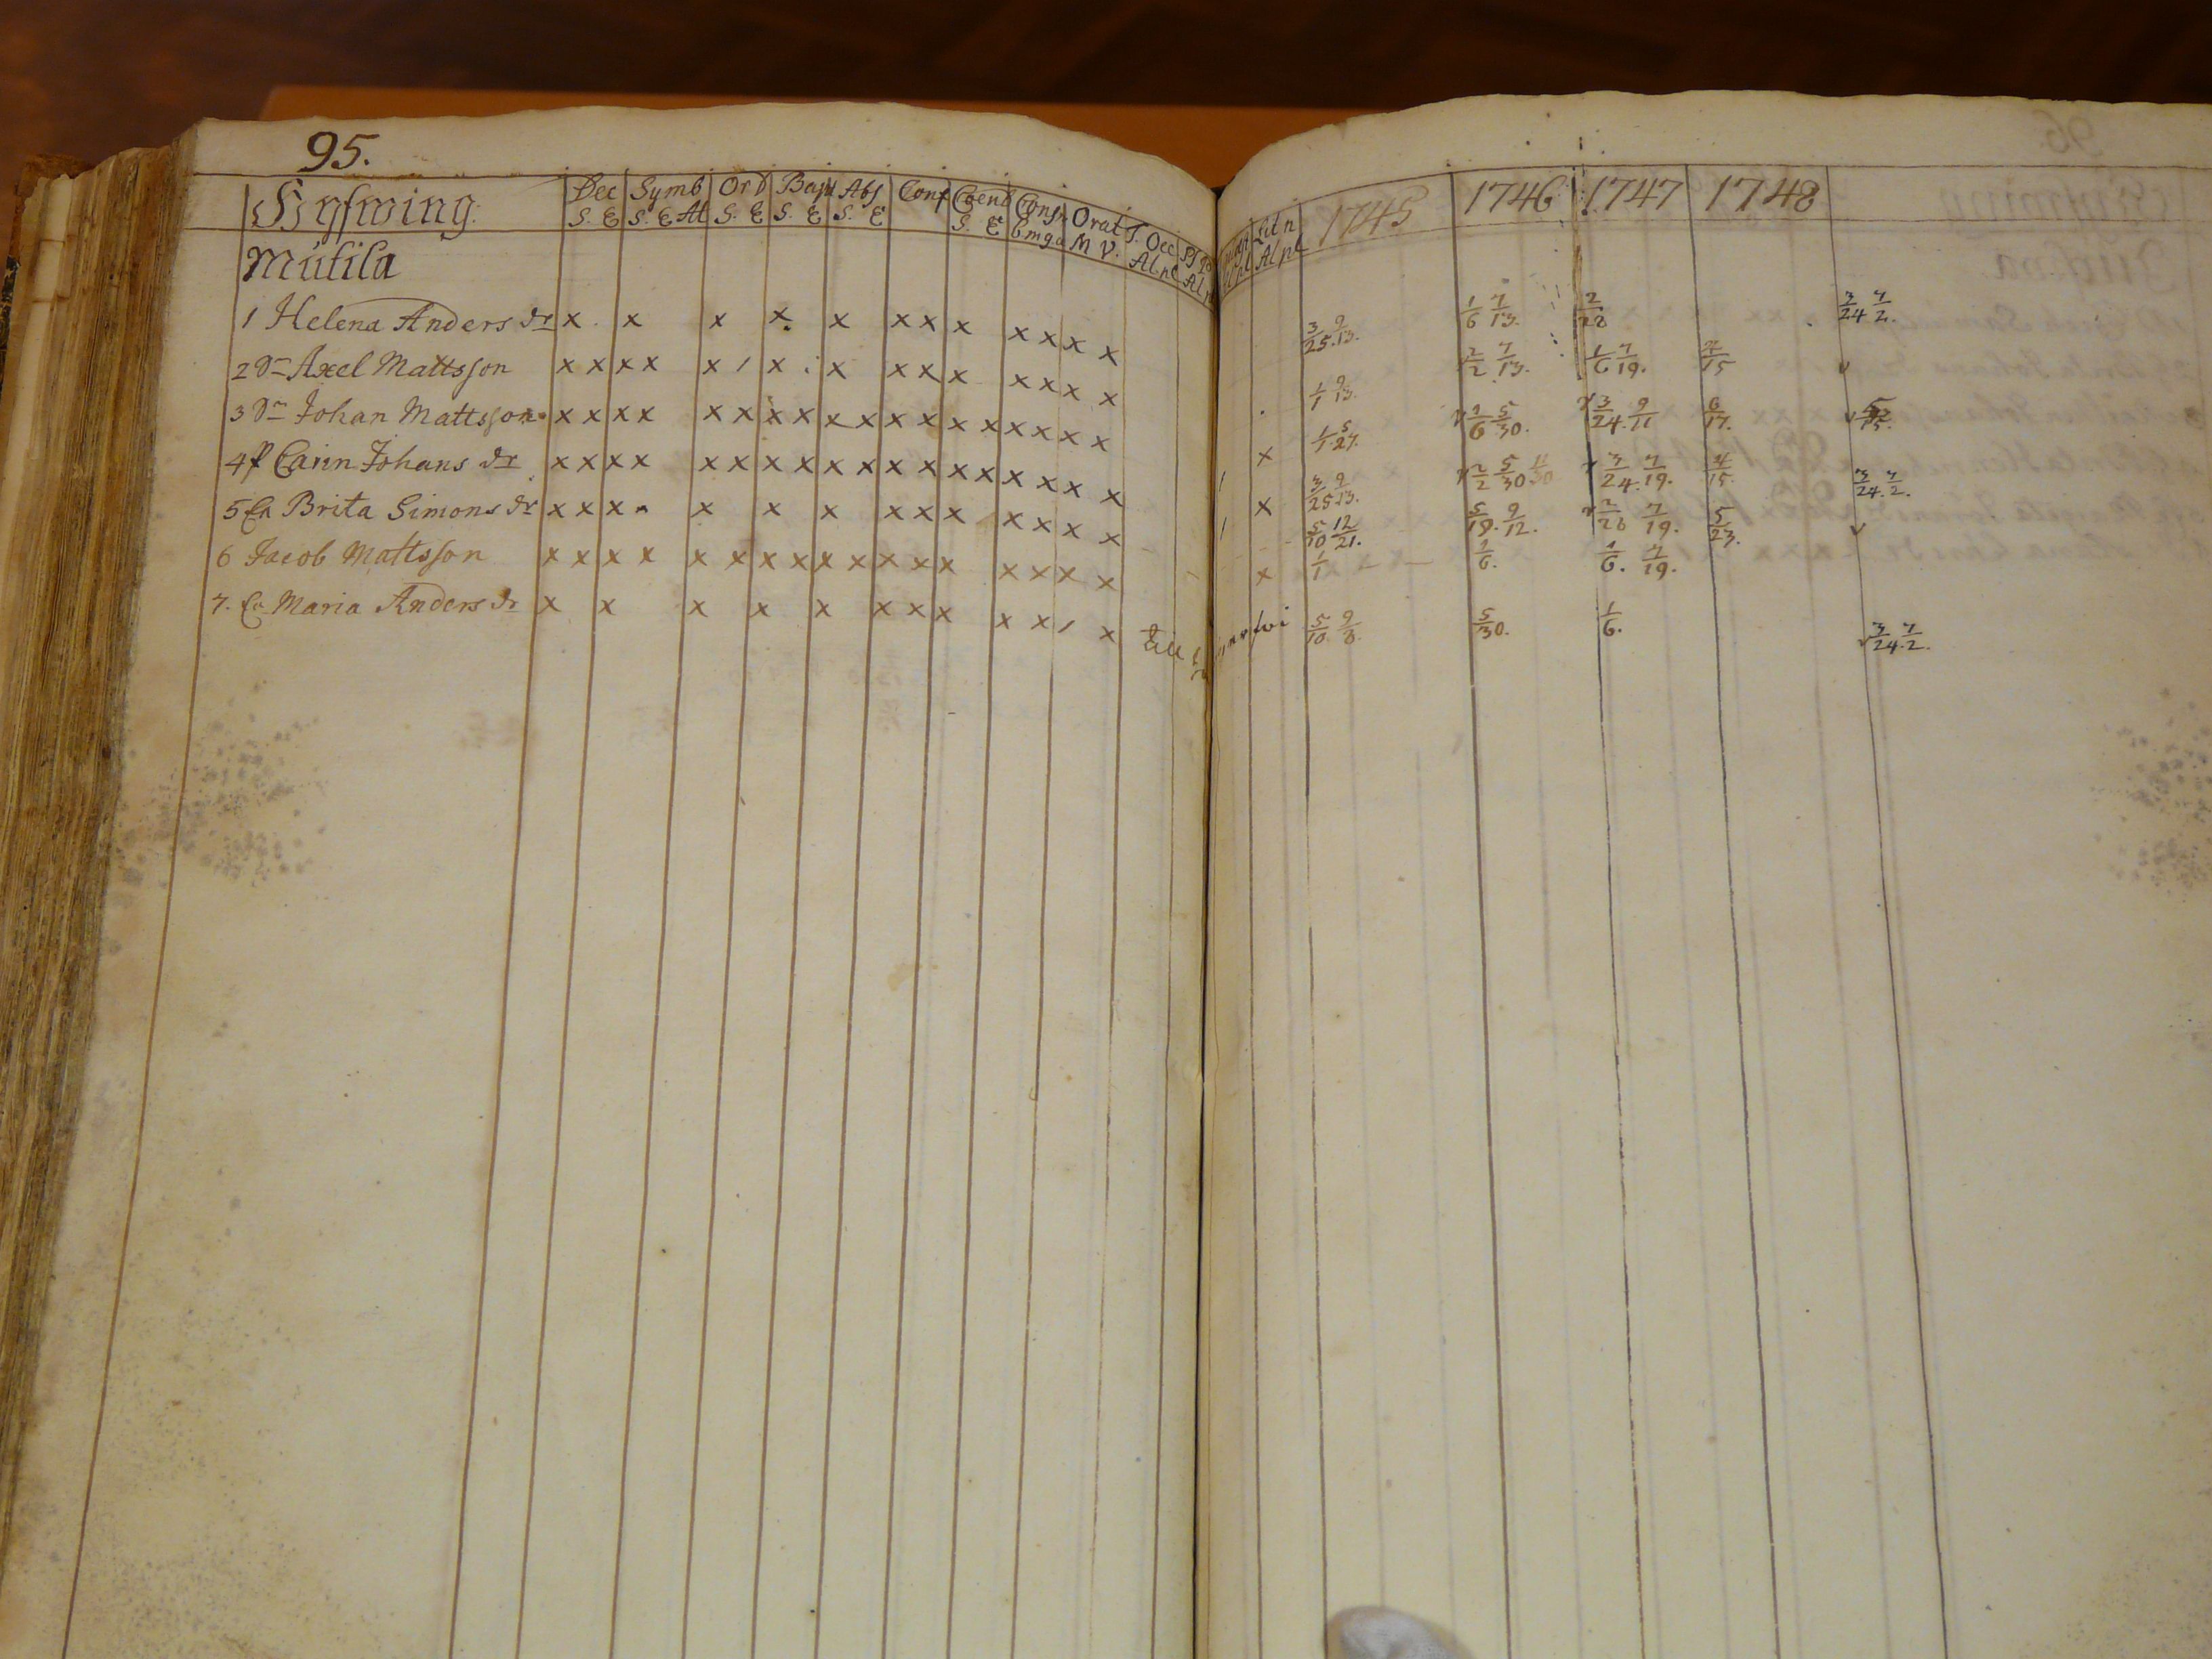 95.
Hysswing.
Dec Symb Ord Bapt Abs Conf Coena Consr Orat T. Oec
S. E S. E At S. E S. E S. E S. E M V. Al.
Litn 1745 1746 1747 1748
Al pl
Mutila
1 Helena Anders dr x x x x x x x x x x x x 3/25. 9/13. 1/6 7/13. 2/28 3/24 7/2.
2 Dr Axel Mattsson x x x x x / x x x x x x x x x 1/1 9/13. 2/2 7/13. 1/6 7/19. 4/15 v
3 Dr Johan Mattsson x x x x x x x x x x x x x x x x x x x 1/1. 5/27. 1/6 5/30. 3/24. 9/11 6/17.
4 f Carin Johans dr x x x x x x x x x x x x x x x x x x / x 3/25. 9/13. 2/2 5/30 11/30 3/24. 7/19. 4/15. 3/24. 7/2.
5 Ea Brita Simons dr x x x x x x x x x x x x x / 5/10 12/21. 5/19. 9/12. 2/28 7/19. 5/23. v
6 Jacob Mattsson x x x x x x x x x x x x x x x x x x 1/1 1/6. 1/6. 7/19.
7. Ea Maria Anders dr x x x x x x x x x x / x till 5/10. 9/8. 5/30. 1/6. v 3/24. 7/2.